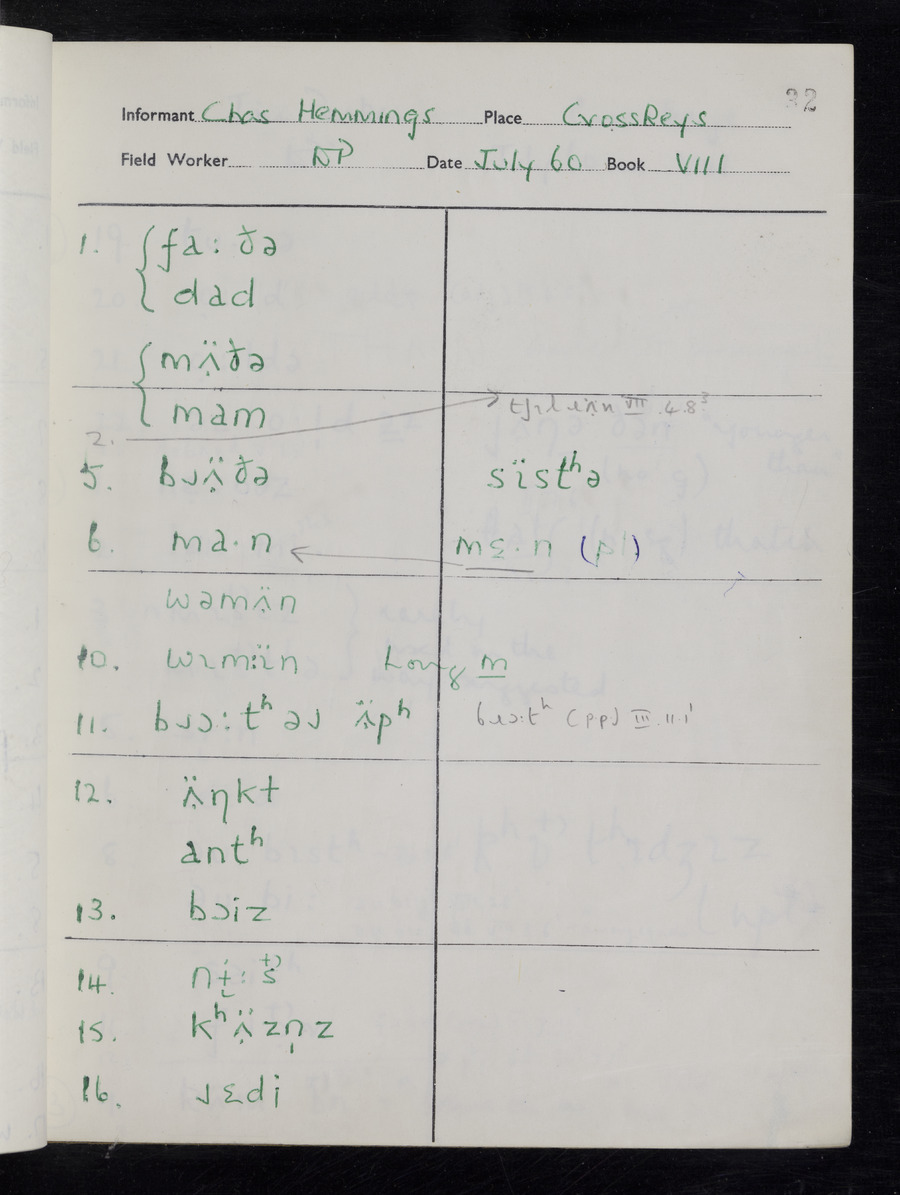 32
Informant Chas Hemmings Place CrossKeys
Field Worker DP Date July 60 Book VIII
1. fa:ðə
dad
mʌ̈ðə
mam
2. VII .4.8³
5. bɹʌ̈ðə sïstʰə
6. ma·n mɛ·n (pl)
wəmʌ̈n
10. wɪm:ïn Long m
11. bɹɔ:tʰ əɹ ʌ̈pʰ bɹɔ:tʰ (pp) III.11.1
12. ʌ̈ŋkɫ
antʰ
13. bɔiz
14.
15. kʰʌ̈zn̩z
16. ɹɛdi